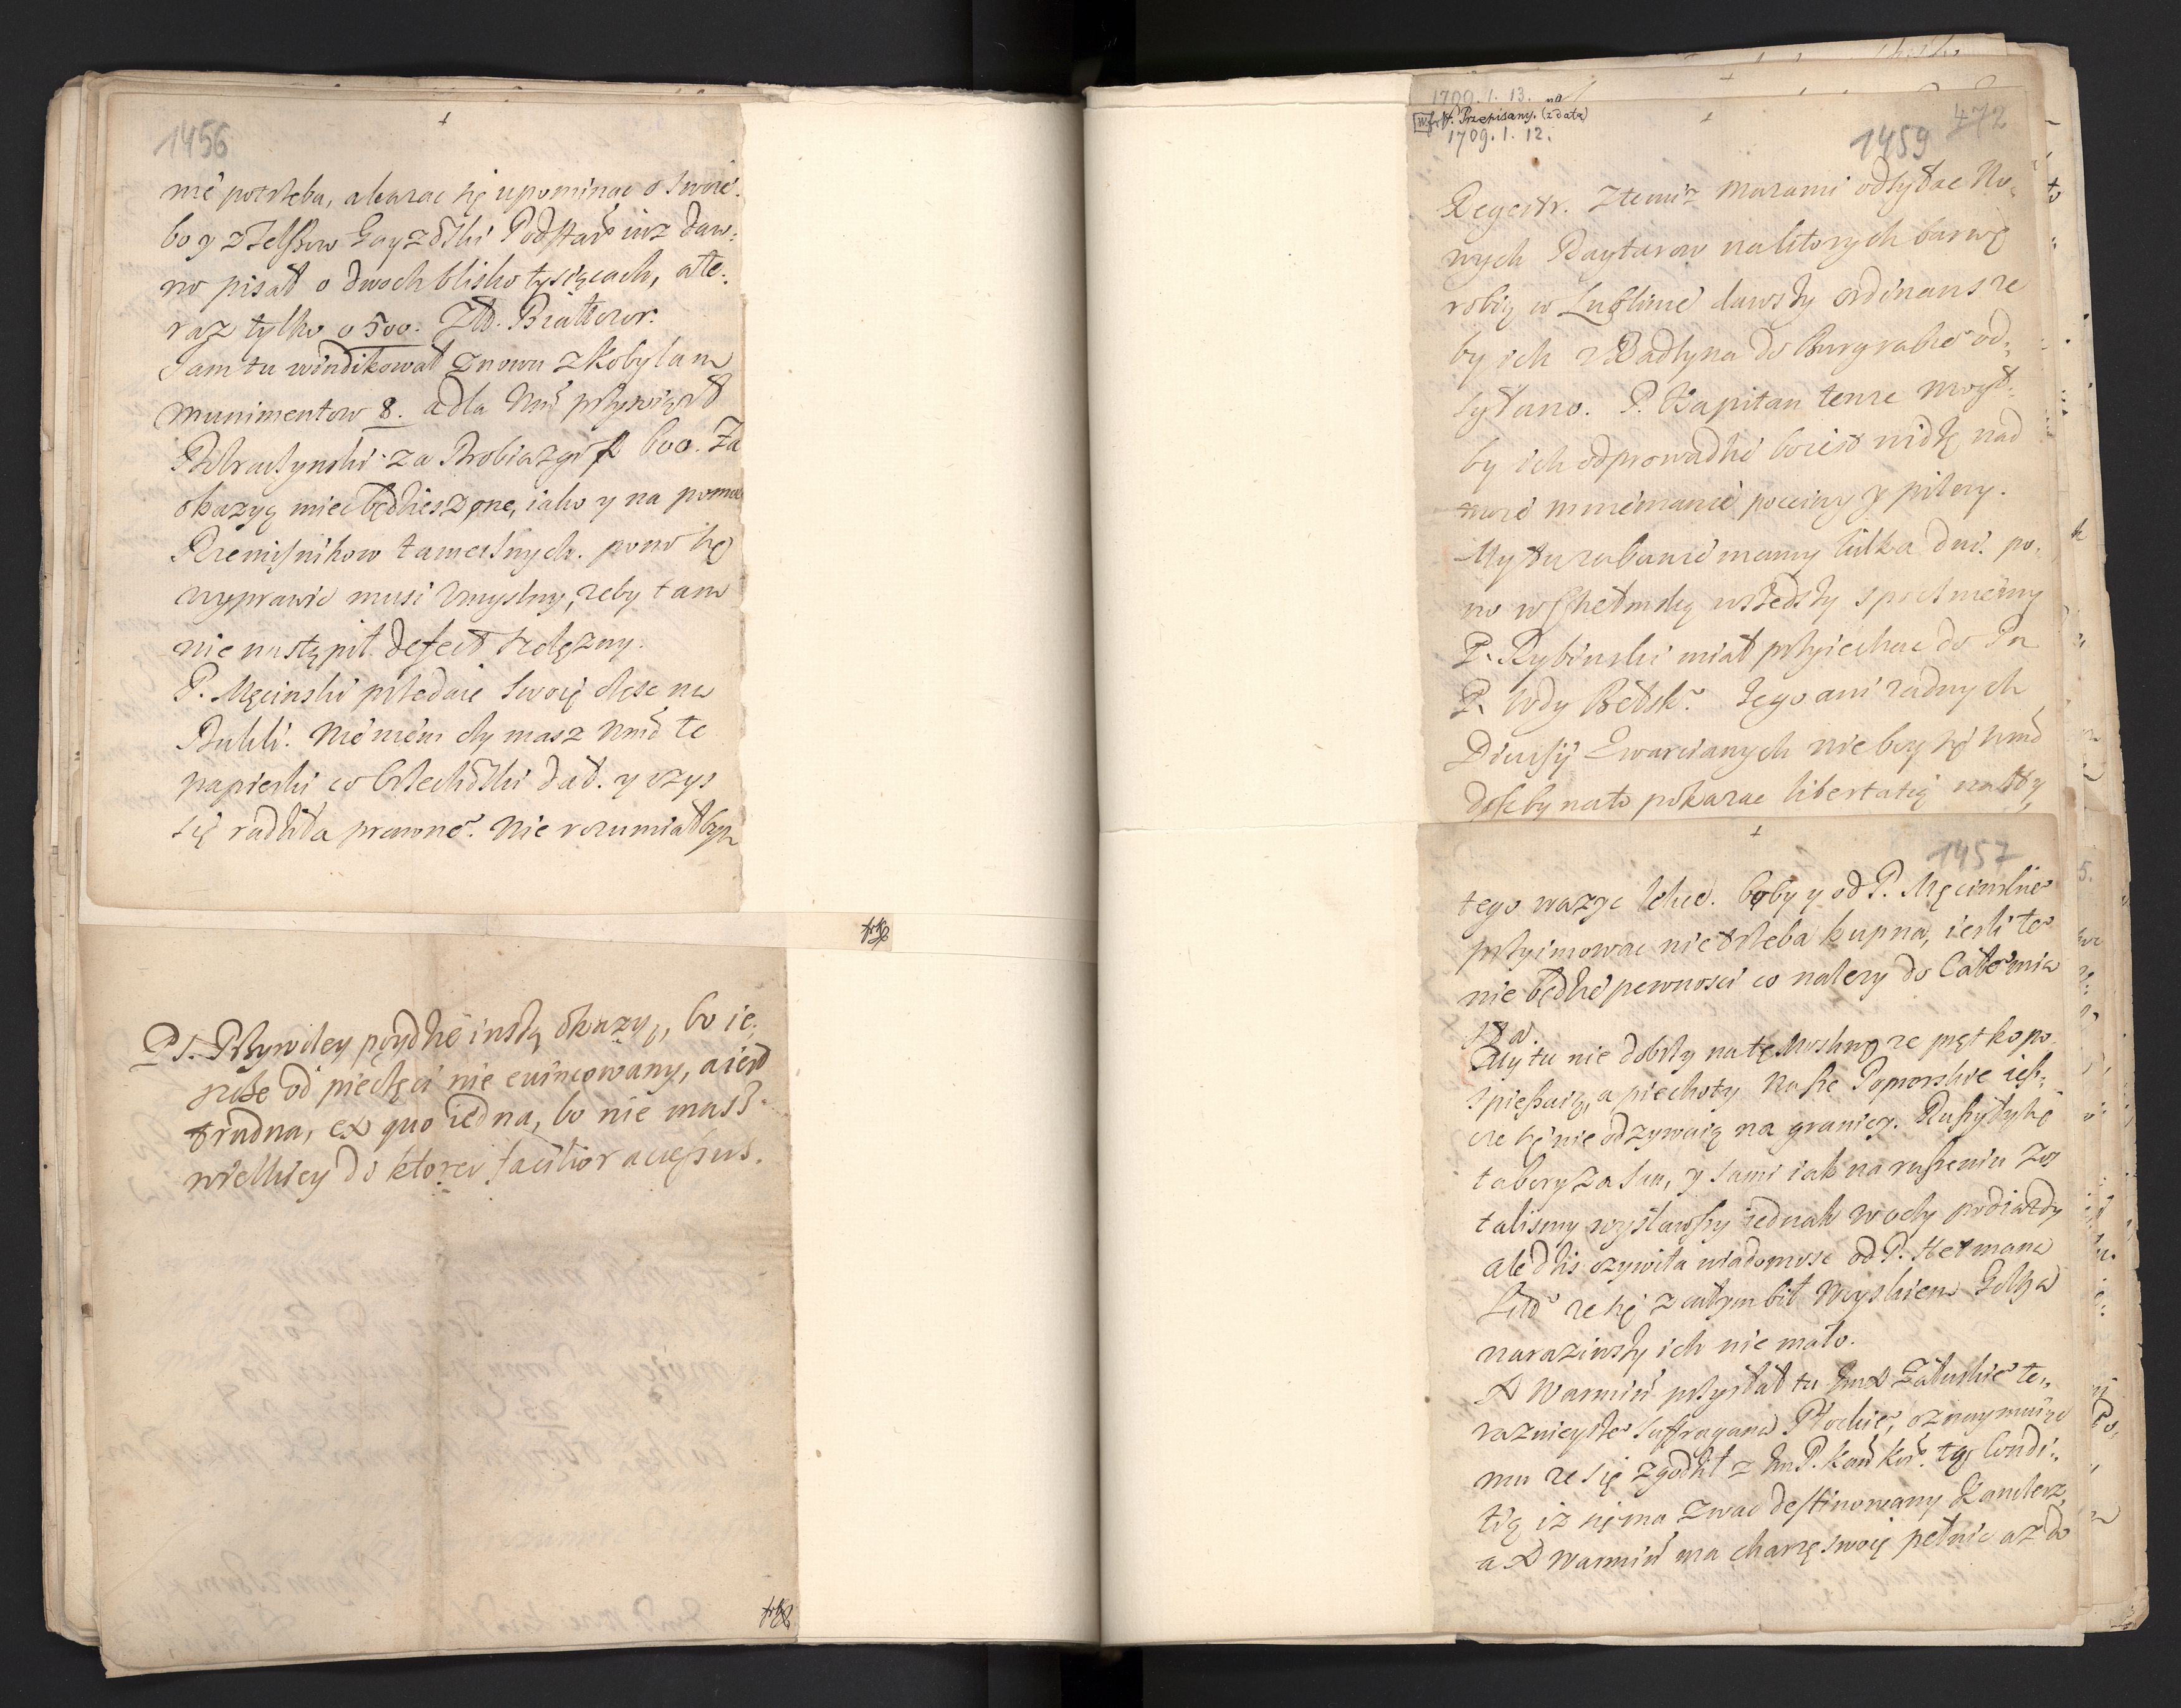 1456
nie potrzeba, a kazac się upominac o swoie.
bo y z Telszow Gayzdzki Podstar iuz daw:
no pisał o dwoch blisko tysiącach, a te:
raz tylko o 500. Zł. Białłozor.
Sam tu windikował znowu z Kobylan
munimentow 8. a dla Wmći przywiązł
za Probiazgi f 600. Za
okazyą miec będziesz one, iako y na pomoc
Rzemiesnikow tamecznych. pono się
wyprawic musi Umyslny, zeby tam
nie nastąpił defect
P. Męcinski przedaie Swoię część na
Bukli. Nie wiem czy masz Wmść te
papierki co Brzechdzki dał. y czys
się radziła prawne. Nie rozumiałbym
frkp
Ps. Przywiley poydzie inszą okazyą, bo ie:
od pieczęci nie euincowany, a iest
trudna, ex quo iedna, bo nie masz
wielkiey do ktorey facilior accessus.
frkp
1709. 1. 13.
Przepisany. (z datą)
1709. 1. 12.
1459 472
Regestr. Ztemiz Marami odsyłac No:
wych Raytarow na ktorych barwę
robią w Lublinie dawszy ordinans ze
by ich z Radzyna do Burgrabie od:
syłano. P. Kapitan tenze mogł:
by ich odprowadzic boiest widzę nad
moie mniemanie poczciwy y pilny.
My tu zabawie mamy kilka dni. po:
no w Chełmską wszedszy spoczniemy
P. Rybinski miał przyiechac do Pa
P. Wdy Bełzk. Jego ani zadnych
Diwisij Zwarcianych nie boy się Wmść
dosc by na to pokazac libertatią
1457
tego wazyc lekce. boby y od P. Męcinskie
przyimowac nie trzeba kupna, iesli te
nie będzie pewnosci co nalezy do Całe mia
sta.
My tu nie dobrzy na tę Moskwę ze prętko po
spieszaią, a piechoty nasze Pomorskie iesz:
cze się nie odzywaią na granicy. Ruszyły się
tabory za San, y sami iak na ruszeniu zos
talismy wysławszy iednak w oczy podiazdy
ale dzis ozywiła wiadomosc od P. Hetmana
Litt ze się z całym bił Woyskiem Goltza
naraziwszy ich nie mało.
X Warmiń przysłał tu Xmd Załuskie te:
raznieysze Suffragana Płockie, oznaymuiąc
mu ze się zgodził z Im P. Kań Kor. tą Condi:
tią iz się ma zwac destinowany Kanclerz,
a X Warmiń ma charzę swoię pełnic az do